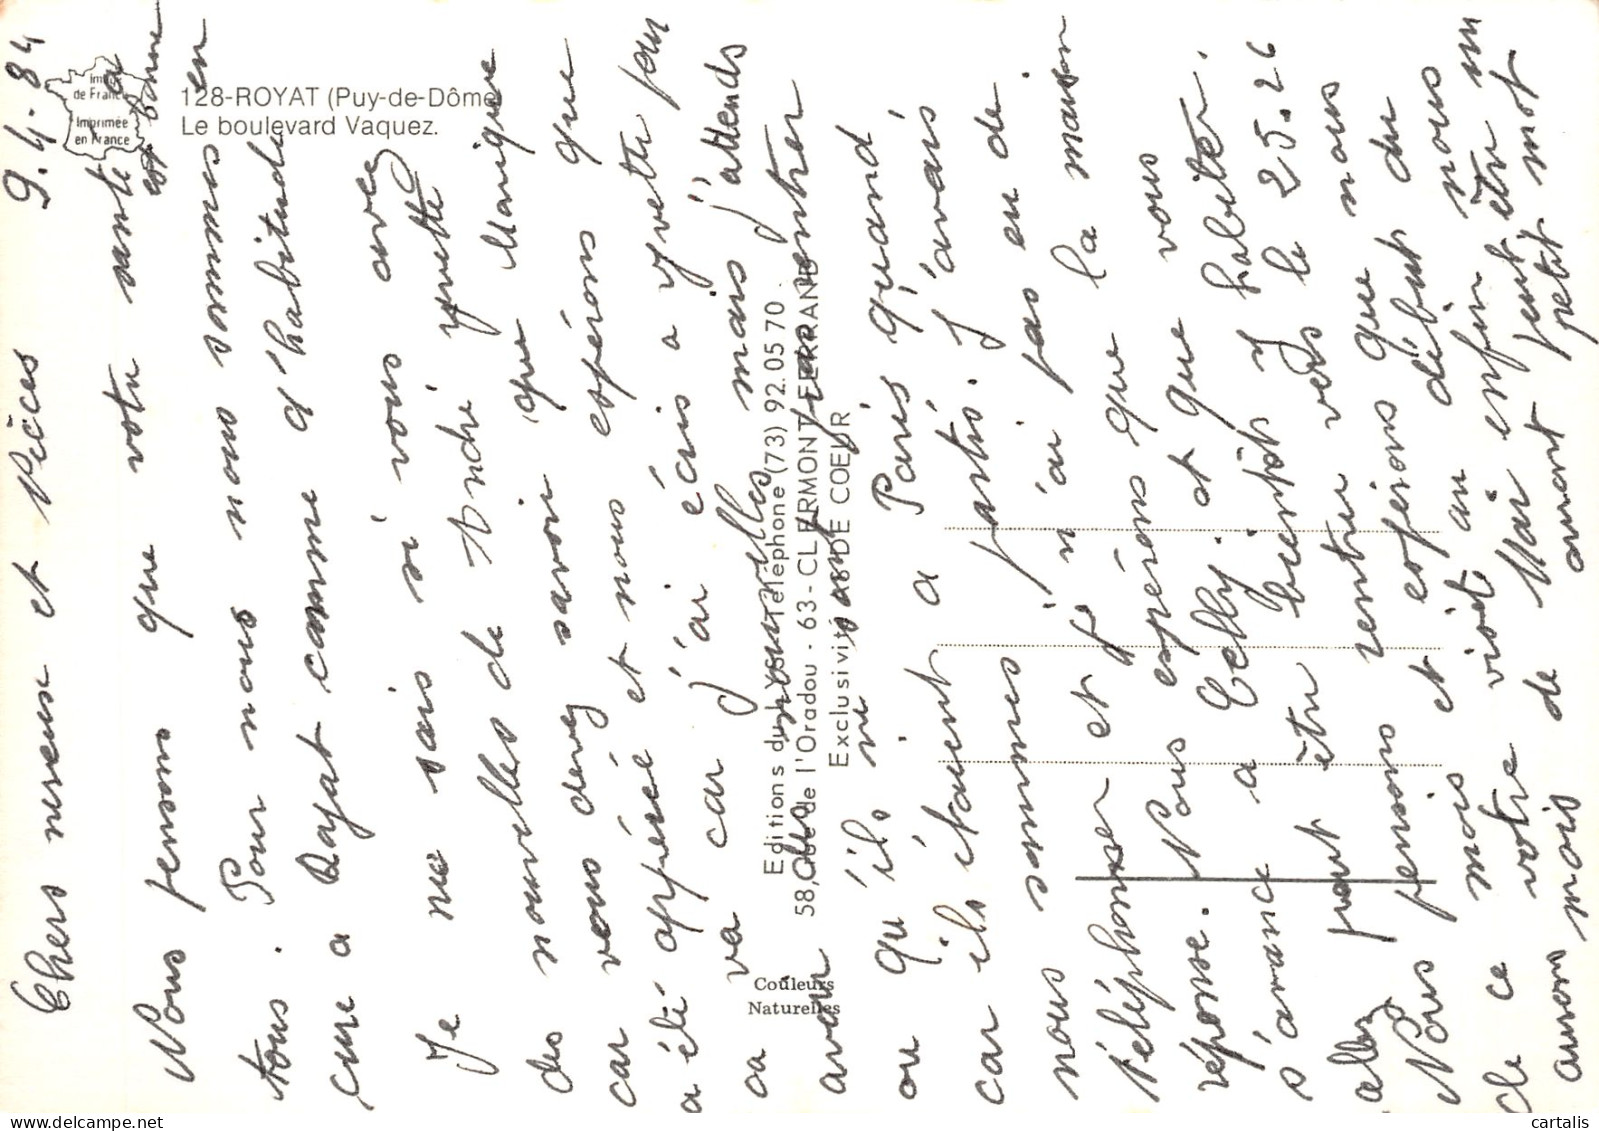 128-ROYAT (Puy-de-Dôme)
Le boulevard Vaquez.
Image
de France
Imprimée
en France
Editions du Lys Téléphone (73) 92.05 70
58, Rue de l'Oradou - 63 - CLERMONT-FERRAND
Exclusivité AS DE COEUR
Couleurs
Naturelles
9.4.84
Chers neveux et Nièces
Nous pensons que votre santé a
est bonne
tous. Pour nous nous sommes en
cure a Royat comme d'habitude
Je ne sais si vous avez
des nouvelles de André yvette
car vous devez savoir que Monique
a été opérée et nous espérons que
va car j'ai écris a yvette pour
avoir des nouvelles mais j'attends
ou qu'ils ne sont pas rentrer
car ils étaient a Paris quand
nous sommes partis. J'avais
téléphoner et je n'ai pas eu de
réponse. Nous espérons que la maison
s'avance a Celly et que vous
allez peut être bientôt y habiter.
Nous pensons rentrer vers le 25.26
de ce mois et espérons que nous
aurons votre visite au début du
mois de Mai enfin nous
avant peut être un
petit mot
cartalis